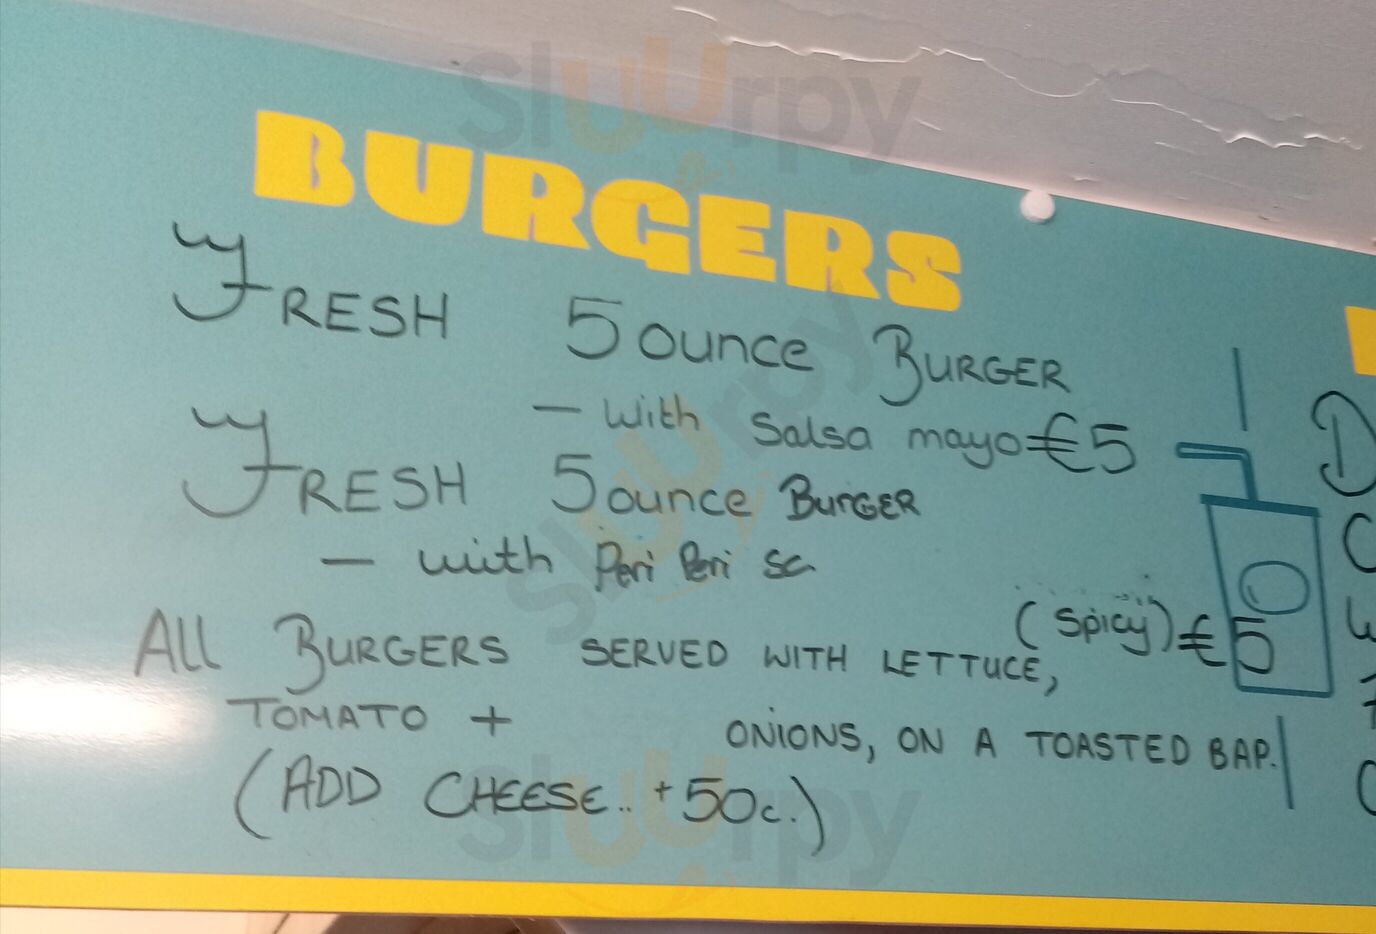 BURGERS
FRESH 5 ounce BURGER
- with Salsa mayo €5
FRESH 5 ounce BURGER
- with Peri Peri Sc.
(Spicy) €5
All BURGERS SERVED WITH LETTUCE,
TOMATO + ONIONS, ON A TOASTED BAP.
(ADD CHEESE.. +50c.)
sluurpy
sluurpy
sluurpy